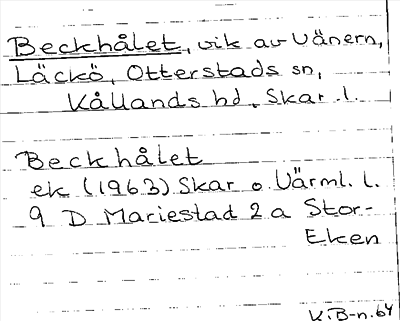 Beckhålet, vik av Vänern,
Läckö, Otterstads sn,
Kållands hd, Skar. l.
Beckhålet
ek (1963) Skar o Värml. l.
9 D Mariestad 2 a Stor-
Eken
K.B-n.64